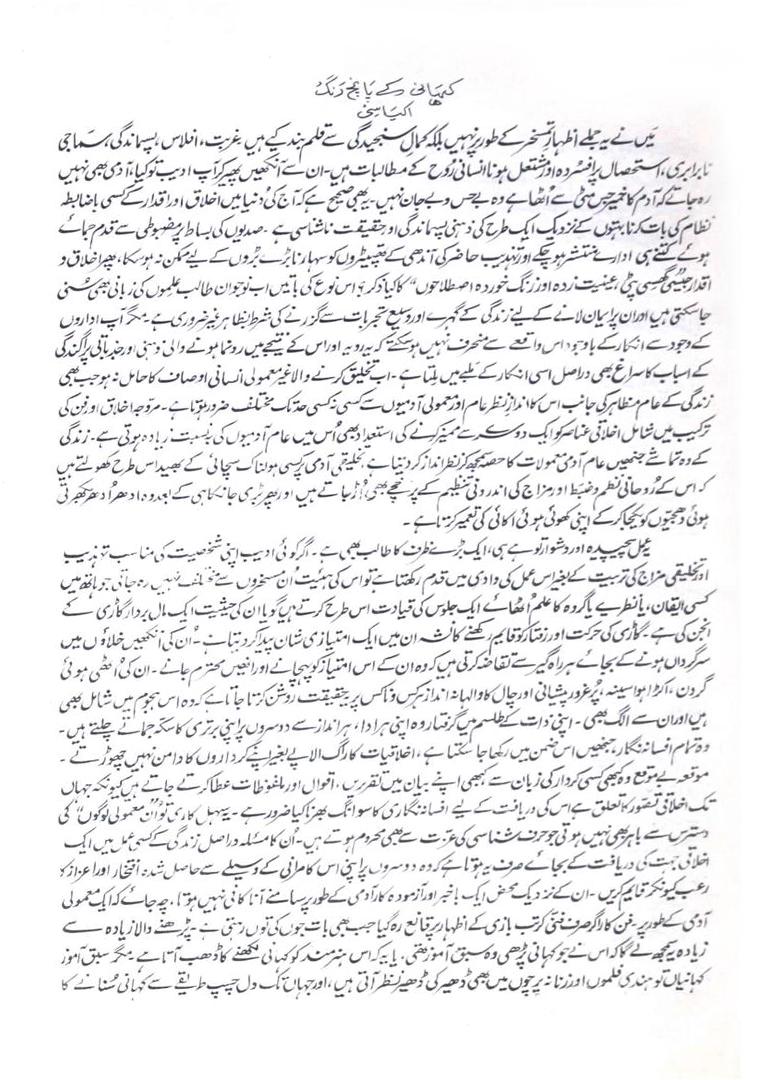 کہانی کے پانچ رنگ
اکیاسی
میں نے یہ جملے اظہارِ تمسخر کے طور پر نہیں بلکہ کمالِ سنجیدگی سے قلم بند کیے ہیں۔ غربت، افلاس، پسماندگی، سماجی
نابرابری، استحصال پر افسردہ اور مشتعل ہونا انسانی رُوح کے مطالبات ہیں۔ ان سے آنکھیں پھیر کر آپ ادیب تو کیا، آدمی بھی نہیں
رہ جاتے کہ آدم کا خمیر جس مٹی سے اُٹھا ہے وہ بے حس و بے جان نہیں۔ یہ بھی صحیح ہے کہ آج کی دُنیا میں اخلاق اور اقدار کے کسی باضابطہ
نظام کی بات کرنا بہتوں کے نزدیک ایک طرح کی ذہنی پسماندگی اور حقیقت ناشناسی ہے۔ صدیوں کی بساط پر مضبوطی سے قدم جمائے
ہوئے کتنے ہی ادارے منتشر ہو چکے اور تہذیبِ حاضر کی آندھی کے تھپیٹروں کو سہارنا بڑے بڑوں کے لیے ممکن نہ ہو سکا، پھر اخلاق و
اقدار جیسی گھسی پٹی، عینیت زدہ اور زنگ خوردہ اصطلاحوں" کا کیا ذکر؟ اس نوع کی باتیں اب نوجوان طالب علموں کی زبانی بھی سُنی
جا سکتی ہیں اور ان پر ایمان لانے کے لیے زندگی کے گہرے اور وسیع تجربات سے گزرنے کی شرط بظاہر غیر ضروری ہے۔ مگر آپ اداروں
کے وجود سے انکار کے باوجود اس واقعے سے منحرف نہیں ہو سکتے کہ یہ رویہ اور اس کے نتیجے میں رونما ہونے والی ذہنی اور جذباتی پراگندگی
کے اسباب کا سراغ بھی دراصل اسی انکار کے ملبے میں ملتا ہے۔ اب تخلیق کرنے والا غیر معمولی انسانی اوصاف کا حامل نہ ہو جب بھی
زندگی کے عام مظاہر کی جانب اس کا اندازِ نظر عام اور معمولی آدمیوں سے کسی نہ کسی حد تک مختلف ضرور ہوتا ہے۔ مروّجہ اخلاق اور فن کی
ترکیب میں شامل اخلاقی عناصر کو ایک دوسرے سے ممیز کرنے کی استعداد بھی اُس میں عام آدمیوں کی بہ نسبت زیادہ ہوتی ہے۔ زندگی
کے وہ تماشے جنھیں عام آدمی معمولات کا حصہ سمجھ کر نظر انداز کر دیتا ہے، تخلیقی آدمی پر کسی ہولناک سچائی کے بھید اس طرح کھولتے ہیں
کہ اس کے رُوحانی نظم و ضبط اور مزاج کی اندرونی تنظیم کے پرخچے بھی اُڑ جاتے ہیں اور پھر بڑی جانکاہی کے بعد وہ ادھر اُدھر بکھرتی
ہوئی دھجیّوں کو یکجا کر کے اپنی کھوئی ہوئی اکائی کی تعمیر کرتا ہے۔
یہ عمل پیچیدہ اور دشوار تو ہے ہی، ایک بڑے ظرف کا طالب بھی ہے۔ اگر کوئی ادیب اپنی شخصیت کی مناسب تہذیب
اور تخلیقی مزاج کی تربیت کے بغیر اس عمل کی وادی میں قدم رکھتا ہے تو اس کی ہئیت اُن مسخروں سے مختلف نہیں رہ جاتی جو ہاتھ میں
کسی ایقان، یا نظریے یا گروہ کا علم اُٹھائے ایک جلوس کی قیادت اس طرح کرتے ہیں گویا ان کی حیثیت ایک مال بردار گاڑی کے
انجن کی ہے۔ گاڑی کی حرکت اور رفتار کو قایم رکھنے کا نشہ ان میں ایک امتیازی شان پیدا کر دیتا ہے۔ اُن کی آنکھیں خلاؤں میں
سرگرداں ہونے کے بجائے ہر راہ گیر سے تقاضہ کرتی ہیں کہ وہ ان کے اس امتیاز کو پہچانے اور انھیں محترم جانے۔ ان کی اُٹھی ہوئی
گردن، اکڑا ہوا سینہ، پُرغرور پیشانی اور چال کا والہانہ انداز ہر کس و ناکس پر یہ حقیقت روشن کرتا جاتا ہے کہ وہ اس ہجوم میں شامل بھی
ہیں اور ان سے الگ بھی۔ اپنی ذات کے طلسم میں گرفتار وہ اپنی ہر ادا، ہر انداز سے دوسروں پر اپنی برتری کا سکّہ جماتے چلتے ہیں۔
وہ تمام افسانہ نگار، جنھیں اس ضمن میں رکھا جا سکتا ہے، اخلاقیات کا راگ الاپے بغیر اپنے کرداروں کا دامن نہیں چھوڑتے۔
موقعہ بے موقع وہ کبھی کسی کردار کی زبان سے کبھی اپنے بیان میں تقریریں، اقوال اور ملفوظات عطا کرتے جاتے ہیں کیونکہ جہاں
تک اخلاقی تصوّر کا تعلق ہے اس کی دریافت کے لیے افسانہ نگاری کا سوانگ بھرنا کیا ضرور ہے۔ یہ سہل کاری تو اُن معمولی لوگوں" کی
دسترس سے باہر بھی نہیں ہوتی جو حرف شناسی کی عزّت سے بھی محروم ہوتے ہیں۔ اُن کا مسئلہ دراصل زندگی کے کسی عمل میں ایک
اخلاقی جہت کی دریافت کے بجائے صرف یہ ہوتا ہے کہ وہ دوسروں پر اپنی اس کامرانی کے وسیلے سے حاصل شدہ افتخار اور اعزاز کا
رعب کیونکر قایم کریں۔ ان کے نزدیک محض ایک باخبر اور آزمودہ کار آدمی کے طور پر سامنے آنا کافی نہیں ہوتا، چہ جائے کہ ایک معمولی
آدمی کے طور پر۔ فن کار اگر صرف فنّی کرتب بازی کے اظہار پر قانع رہ گیا جب بھی بات جوں کی توں رہتی ہے۔ پڑھنے والا زیادہ سے
زیادہ یہ سمجھ لے گا کہ اس نے جو کہانی پڑھی وہ سبق آموز تھی، یا یہ کہ اس ہنر مند کو کہانی لکھنے کا ڈھب آتا ہے۔ مگر سبق آموز
کہانیاں تو ہندی فلموں اور زنانہ پرچوں میں بھی ڈھیر کی ڈھیر نظر آتی ہیں، اور جہاں تک دل چسپ طریقے سے کہانی سُنانے کا